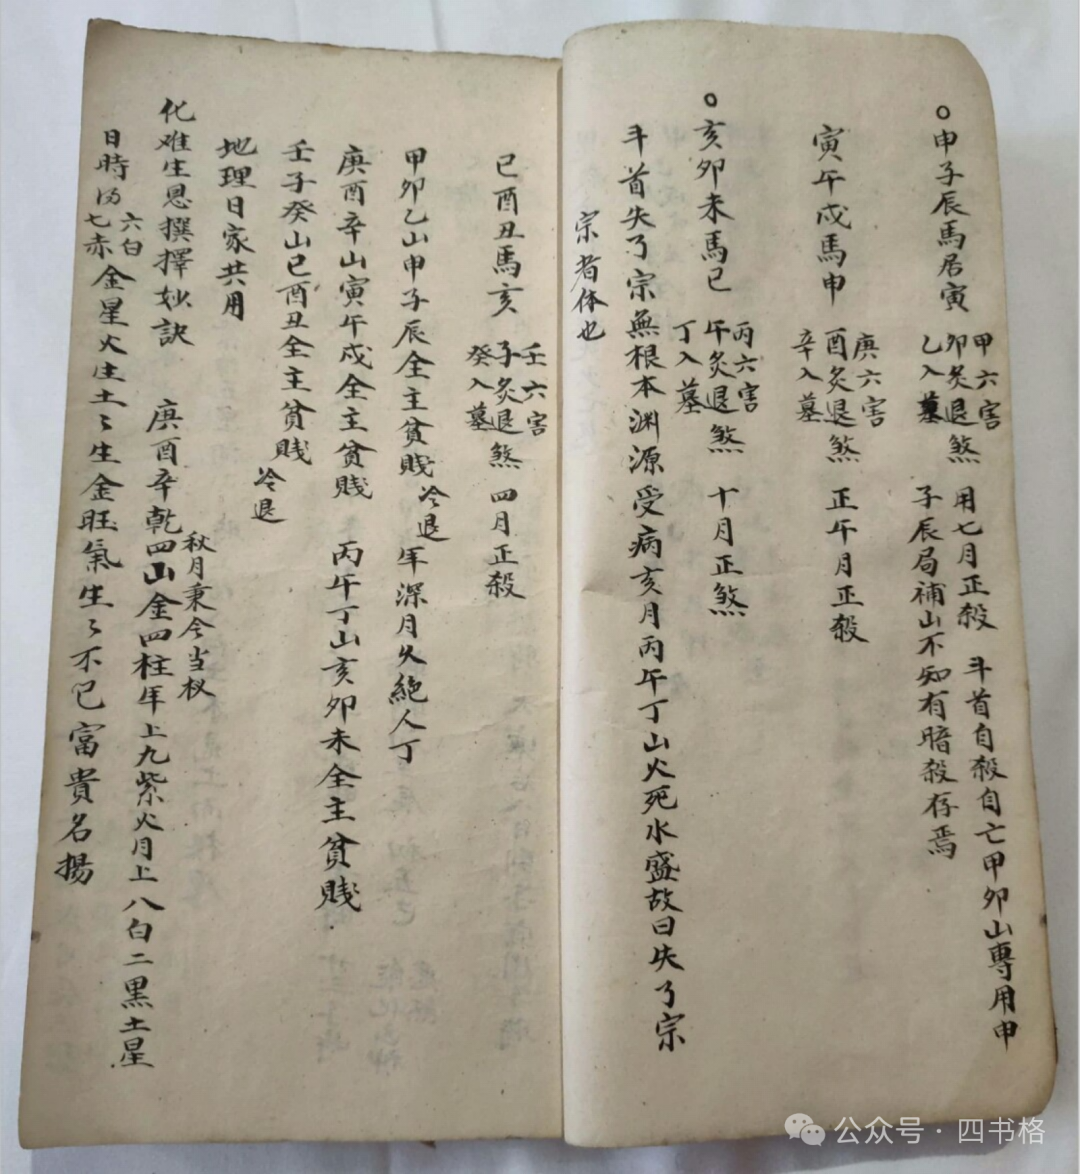 ○申子辰馬居寅
甲六害
卯灸退煞
乙入墓
用七月正殺 斗首自殺自亡甲卯山專用申
子辰局補山不知有暗殺存焉
寅午戌馬申
庚六害
酉灸退煞
辛入墓
正午月正殺
○亥卯未馬巳
丙六害
午灸退煞
丁入墓
十月正煞
斗首失了宗無根本渊源受病亥月丙午丁山火死水盛故曰失了宗
宗者体也
巳酉丑馬亥
壬六害
子灸退煞
癸入墓
四月正殺
甲卯乙山申子辰全主貧賤冷退年深月久絕人丁
庚酉辛山寅午戌全主貧賤 丙午丁山亥卯未全主貧賤
壬子癸山巳酉丑全主貧賤冷退
地理日家共用
化难生恩撰擇妙訣 庚酉辛乾四山金四柱年上九紫火月上八白二黑土星
秋月秉令当权
日時得六白七赤金星火生土〻生金旺氣生〻不已富貴名揚
公众号·四书格